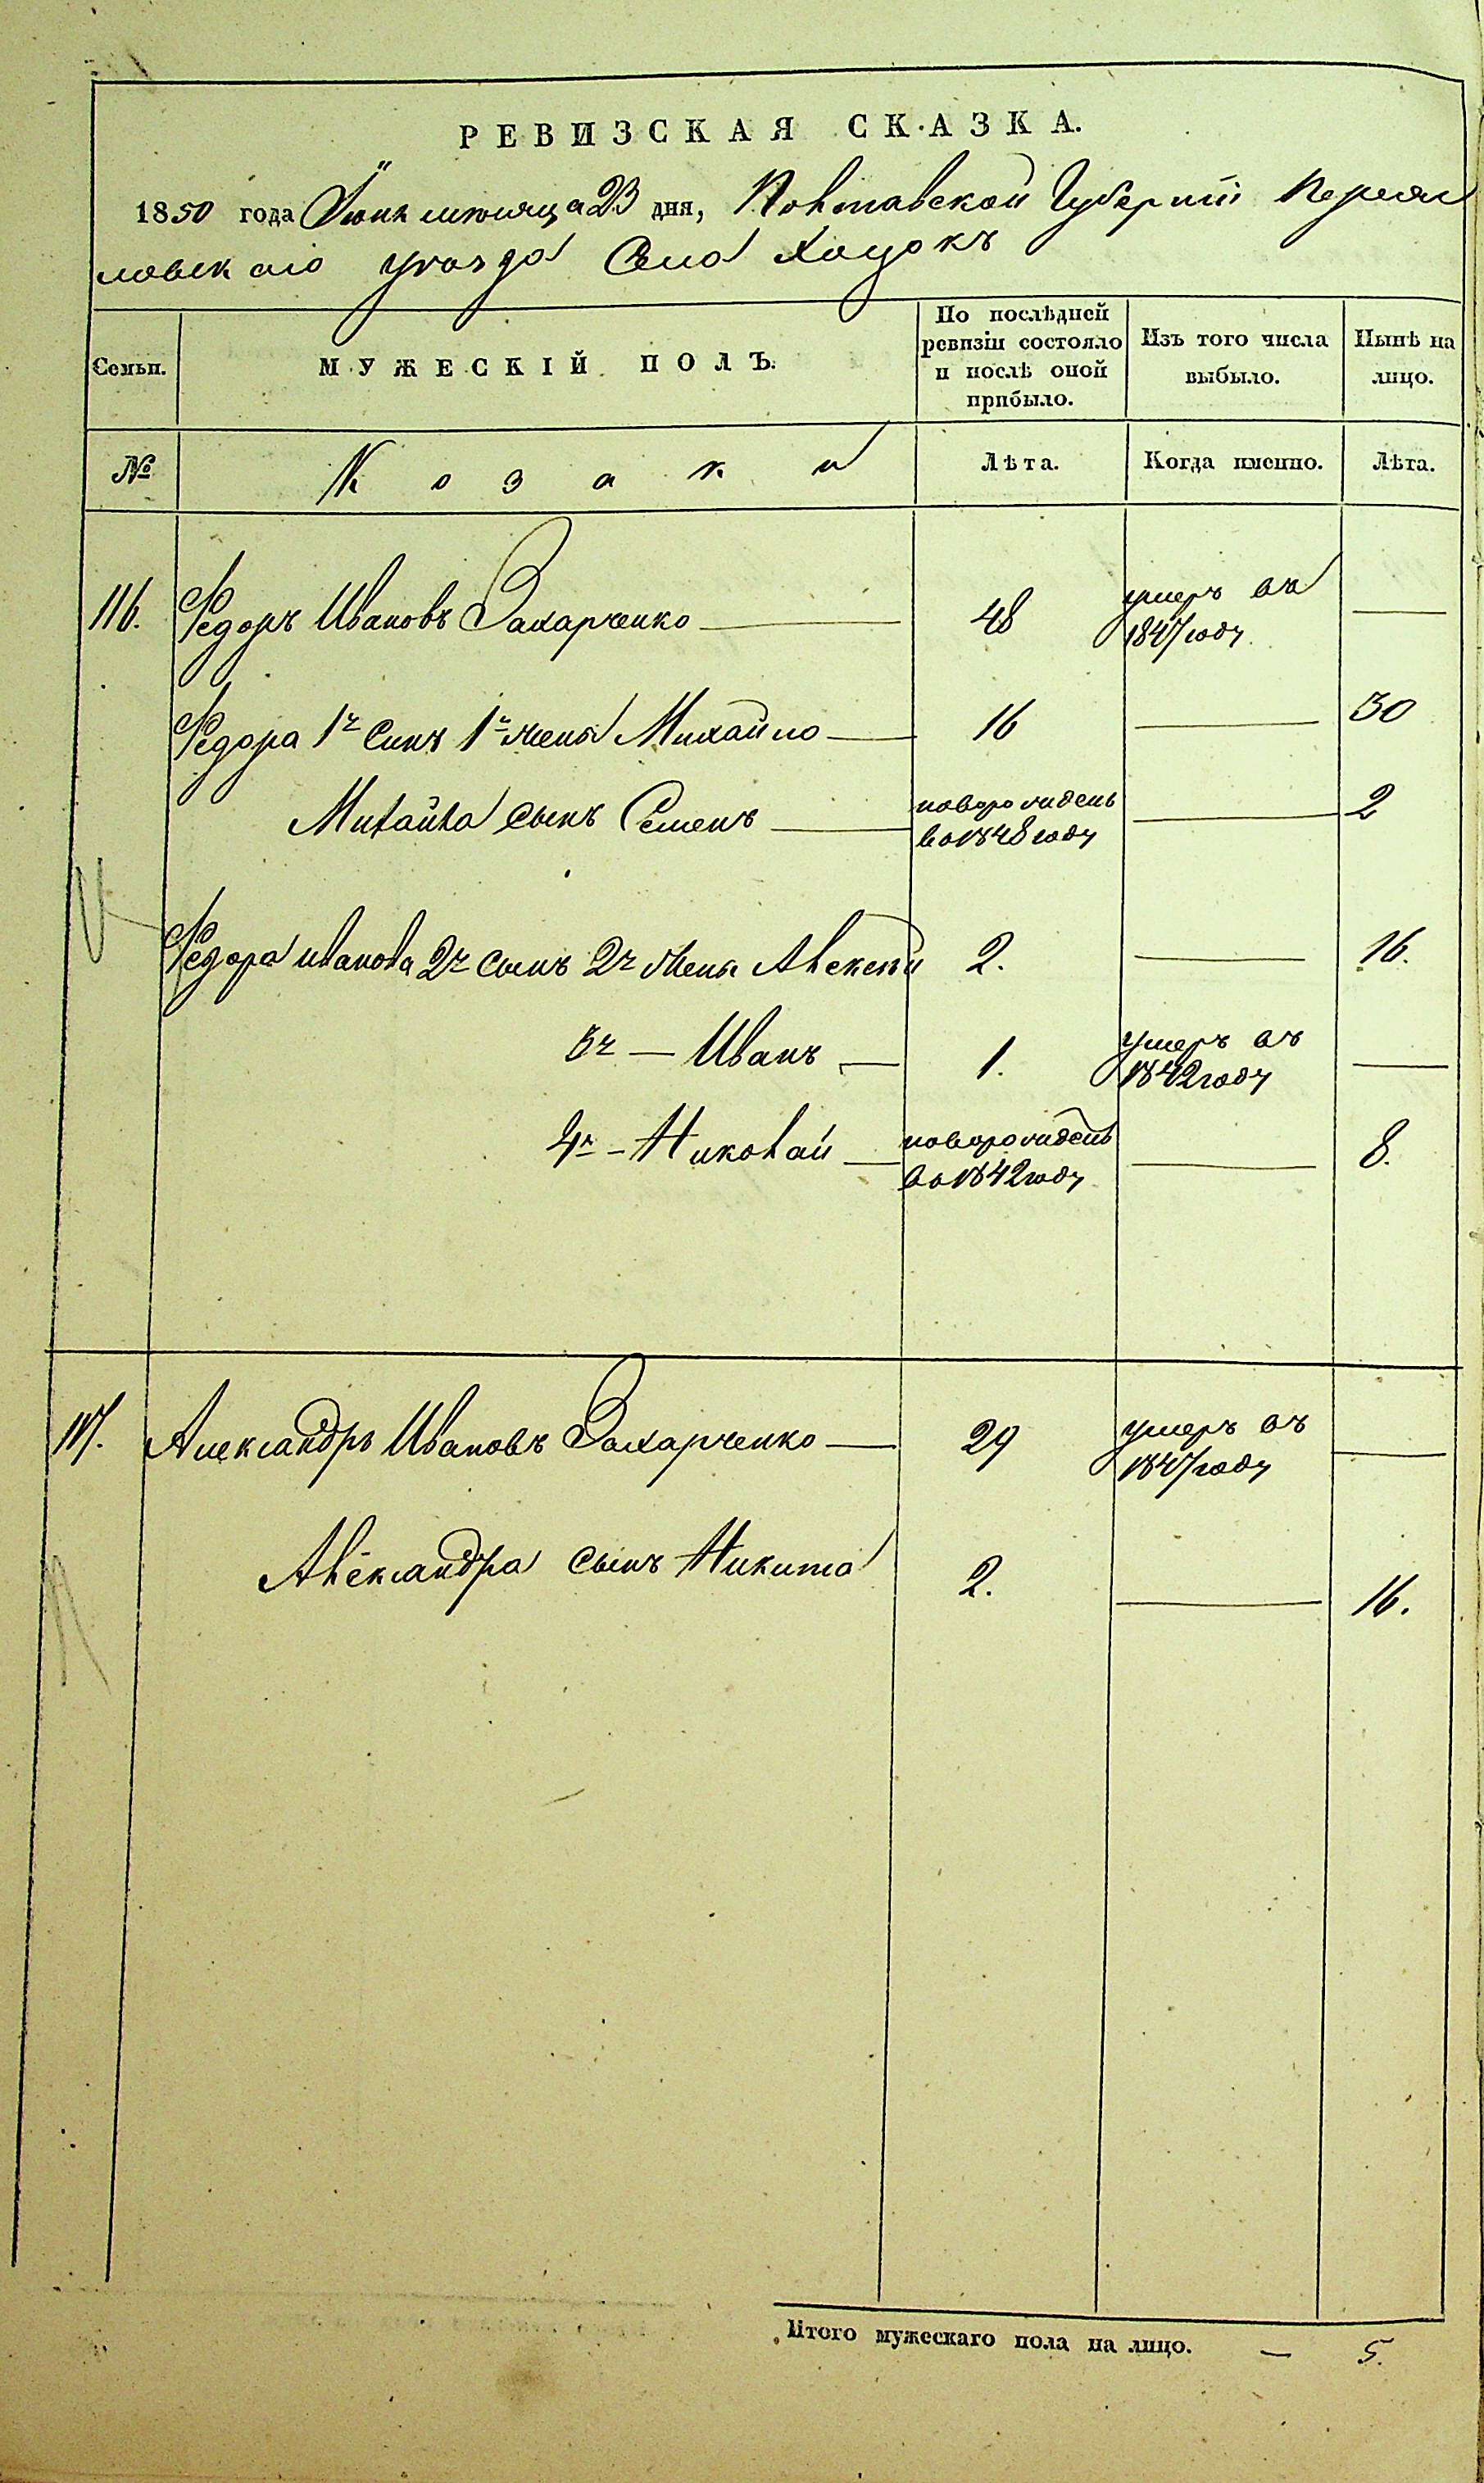 РЕВИЗСКАЯ СКАЗКА.
1850 года Іюня мѣсяца 23 дня, Полтавской Губерніи Переяс
ловского уѣзда Села Хоцокъ
Семьи. МУЖЕСКІЙ ПОЛЪ. По послѣдней ревизіи состояло и послѣ оной прибыло. Изъ того числа выбыло. Нынѣ на лицо.
№ Козаки Лѣта. Когда именно. Лѣта.
116. Федоръ Ивановъ Захарченко — 48 умеръ въ 1847 году —
Федора 1й Синъ 1й жены Михайло — 16 — 30
Михайла сынъ Семенъ — новорожденъ въ 1848 году — 2
Федора иванова 2й сынъ 2й жены Алексей 2. — 16.
3й — Иванъ — 1. умеръ въ 1842 году —
4й — Николай — новорожденъ въ 1842 году — 8.
117. Александръ Ивановъ Захарченко — 29 умеръ въ 1847 году —
Александра сынъ Никита 2. — 16.
Итого мужескаго пола на лицо. — 5.